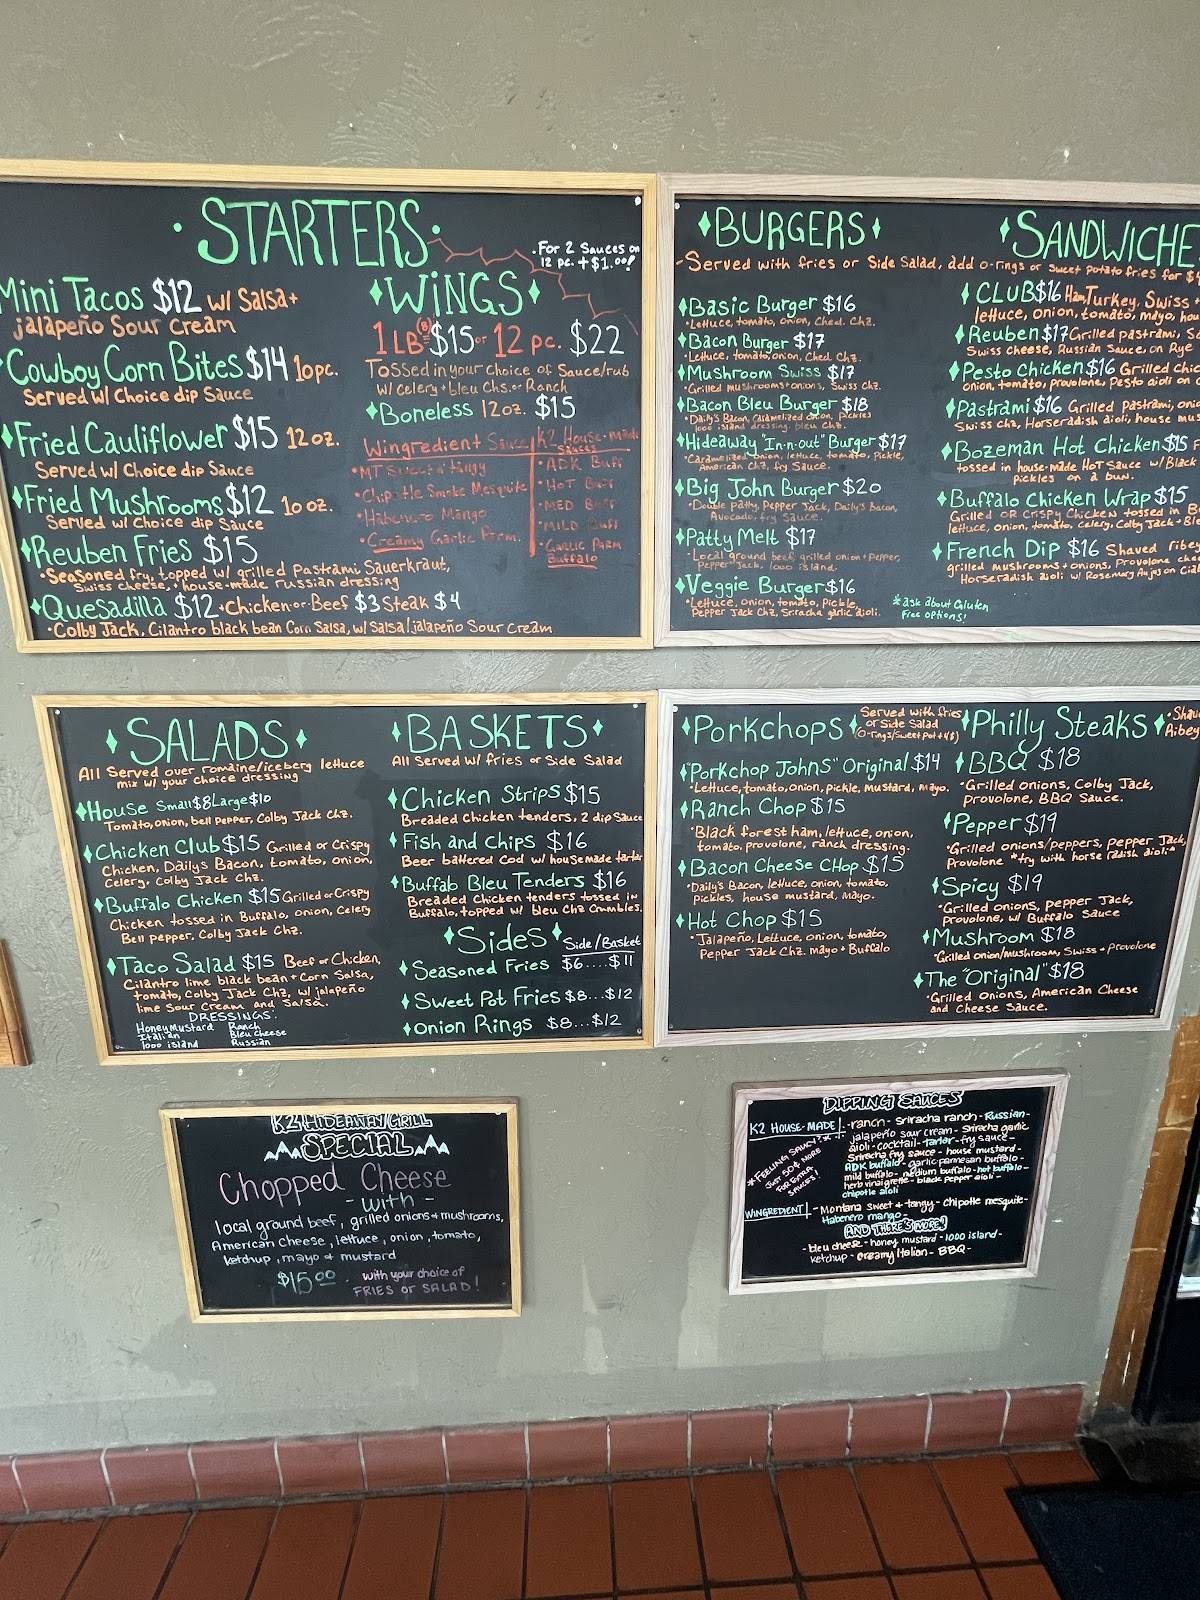 • STARTERS •
Mini Tacos $12 w/ Salsa +
jalapeño Sour Cream
Cowboy Corn Bites $14 10pc.
Served w/ Choice dip Sauce
Fried Cauliflower $15 12 oz.
Served w/ Choice dip Sauce
Fried Mushrooms $12 10 oz.
Served w/ Choice dip Sauce
Reuben Fries $15
• Seasoned fry, topped w/ grilled Pastrami, Sauerkraut,
Swiss cheese, + house-made russian dressing
Quesadilla $12 + Chicken or Beef $3 Steak $4
• Colby Jack, Cilantro black bean Corn Salsa, w/ Salsa/jalapeño Sour Cream
• For 2 Sauces on
12 pc. + $1.00!
WiNGS
1 LB (8) $15 or 12 pc. $22
Tossed in your choice of Sauce/rub
w/ celery + bleu Chs. or Ranch
Boneless 12oz. $15
Wingredient Sauces
• MT Sweet n' tangy
• Chipotle Smoke Mesquite
• Habenero Mango
• Creamy Garlic Parm.
K2 House-made
Sauces
• ADK Buff
• HoT Buff
• MED Buff
• MILD Buff
• GARLIC PARM
Buffalo
BURGERS
SANDWICHE
- Served with fries or Side Salad, add o-rings or Sweet potato fries for $
Basic Burger $16
• Lettuce, tomato, onion, Ched. Chz.
Bacon Burger $17
• Lettuce, tomato, onion, Ched Chz.
Mushroom Swiss $17
• Grilled mushrooms + onions, Swiss Chz.
Bacon Bleu Burger $18
• Daily's Bacon, Caramelized onion, Pickles
1000 island dressing, bleu Chz.
Hideaway "In-n-out" Burger $17
• Caramelized onion, lettuce, tomato, Pickle,
American Chz, fry Sauce.
Big John Burger $20
• Double patty, Pepper Jack, Daily's Bacon,
Avocado, fry Sauce.
Patty Melt $17
• Local ground beef, grilled onion + Pepper,
Pepper Jack, 1000 island.
Veggie Burger $16
• Lettuce, onion, tomato, Pickle,
Pepper Jack Chz, Sriracha garlic aioli.
* ask about Gluten
Free options!
CLUB $16 Ham, Turkey, Swiss
lettuce, onion, tomato, mayo, hou
Reuben $17 Grilled pastrami, Sa
Swiss cheese, Russian Sauce, on Rye
Pesto Chicken $16 Grilled Chic
onion, tomato, provolone, Pesto aioli on
Pastrami $16 Grilled Pastrami, onio
Swiss chz, Horseradish aioli, house mus
Bozeman Hot Chicken $15
tossed in house-made HoT Sauce w/ Black
pickles on a bun.
Buffalo Chicken Wrap $15
Grilled OR Crispy Chicken tossed in B
lettuce, onion, tomato, Celery, Colby Jack + Bl
French Dip $16 Shaved Ribey
grilled mushrooms + onions, Provolone ch
Horseradish aioli w/ Rosemary Aujus on Cia
SALADS
All Served over romaine/iceberg lettuce
mix w/ your choice dressing
House Small $8 Large $10
Tomato, onion, bell pepper, Colby Jack Chz.
Chicken Club $15 Grilled or Crispy
Chicken, Dailys Bacon, tomato, onion,
Celery, Colby Jack Chz.
Buffalo Chicken $15 Grilled or Crispy
Chicken tossed in Buffalo, onion, Celery
Bell pepper, Colby Jack Chz.
Taco Salad $15 Beef or Chicken,
Cilantro lime black bean + Corn Salsa,
tomato, Colby Jack Chz, w/ jalapeño
lime Sour Cream and Salsa.
DRESSINGS:
Honey Mustard Ranch
Italian Bleu Cheese
1000 island Russian
BASKETS
All Served w/ fries or Side Salad
Chicken Strips $15
Breaded Chicken tenders, 2 dip Sauce
Fish and Chips $16
Beer battered Cod w/ housemade tartar
Buffalo Bleu Tenders $16
Breaded Chicken tenders tossed in
Buffalo, topped w/ bleu Chz Crumbles.
Sides Side/Basket
Seasoned Fries $6....$11
Sweet Pot Fries $8...$12
Onion Rings $8...$12
Porkchops
Served with fries
or Side Salad
"Porkchop John's" Original $14
• Lettuce, tomato, onion, pickle, mustard, mayo.
Ranch Chop $15
• Black forest ham, lettuce, onion,
tomato, provolone, ranch dressing.
Bacon Cheese CHop $15
• Daily's Bacon, lettuce, onion, tomato,
pickles, house mustard, mayo.
Hot Chop $15
• Jalapeño, Lettuce, onion, tomato,
Pepper Jack Chz. mayo + Buffalo
Philly Steaks
• Shav
Ribey
BBQ $18
• Grilled onions, Colby Jack,
provolone, BBQ Sauce.
Pepper $19
• Grilled onions/peppers, pepper Jack,
Provolone *try with horse radish aioli*
Spicy $19
• Grilled onions, pepper Jack,
provolone, w/ Buffalo Sauce
Mushroom $18
• Grilled onion/mushroom, Swiss + Provolone
The "Original" $18
• Grilled Onions, American Cheese
and Cheese Sauce.
K2 HIDEAWAY GRILL
SPECIAL
Chopped Cheese
- with -
local ground beef, grilled onions + mushrooms,
American Cheese, lettuce, onion, tomato,
ketchup, mayo + mustard
$15.00 with your choice of
FRIES or SALAD!
DIPPING SAUCES
K2 HOUSE-MADE! - ranch - sriracha ranch - Russian -
jalapeño sour cream - Sriracha garlic
aioli - cocktail - Tartar - fry sauce -
Sriracha fry sauce - house mustard -
ADK buffalo - garlic parmesan buffalo -
mild buffalo - medium buffalo - hot buffalo -
herb vinaigrette - black pepper aioli -
chipotle aioli
* FEELING SAUCY? *
JUST 50¢ MORE
FOR EXTRA
SAUCES!
WINGREDIENT! - Montana sweet + tangy - chipotle mesquite -
Habenero mango -
AND THERE'S MORE!
- bleu cheese - honey mustard - 1000 island -
ketchup - creamy Italian - BBQ -